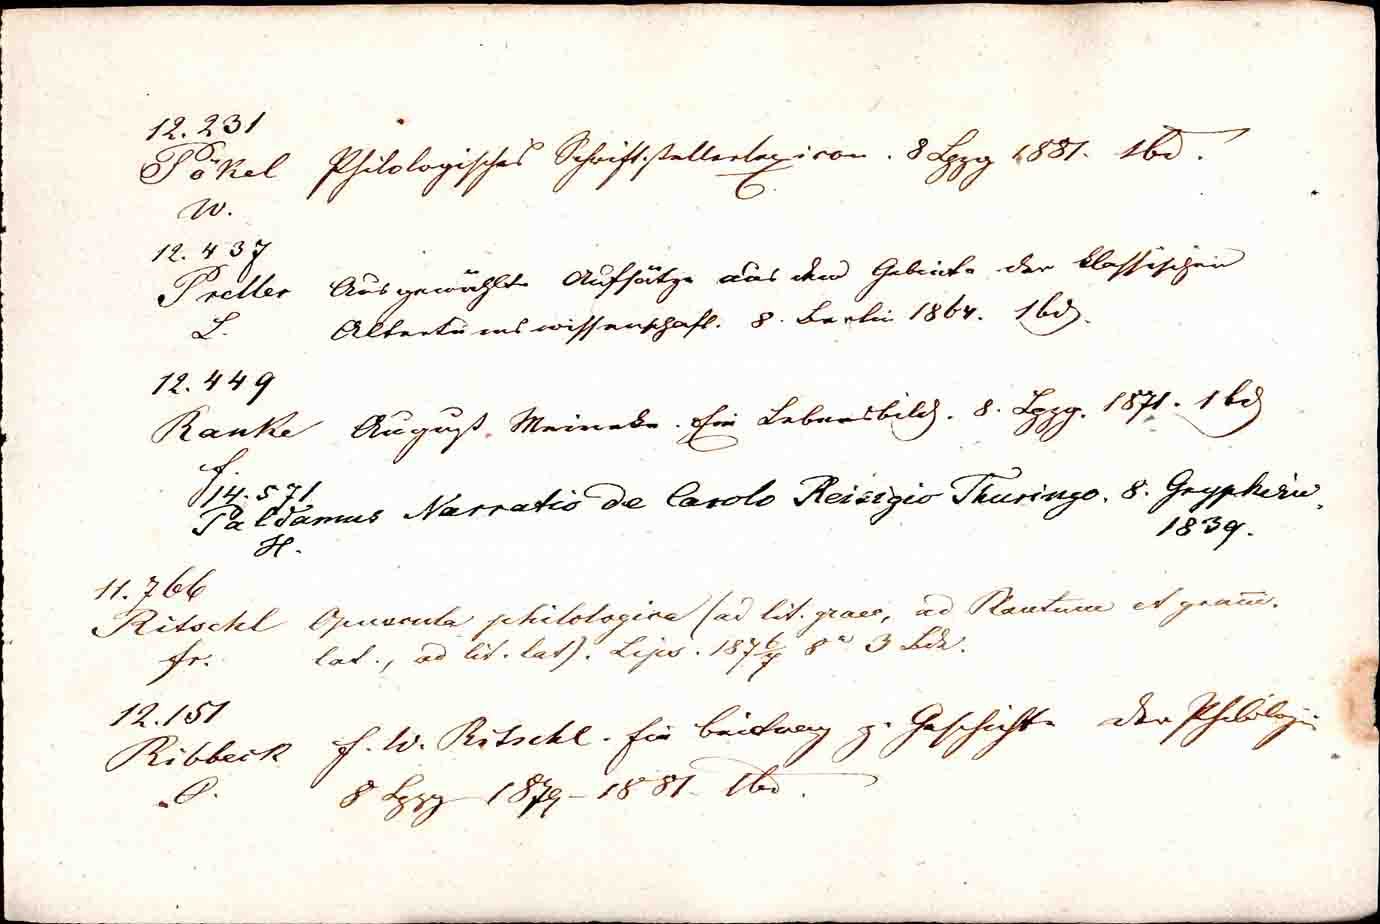 12.231
Pökel Philologisches Schriftstellerlexicon. 8 Lpzg 1881. 1bd.
W.
12.437
Preller Ausgewählte Aufsätze aus dem Gebiete der klassischen
L. Altertumswissenschaft. 8. Berlin 1864. 1bd.
12.449
Ranke August Meineke. Ein Lebensbild. 8. Lpzg. 1871. 1bd
F.
14.571
Paldamus Narratio de Carolo Reisigio Thuringo. 8. Gryphiae.
H. 1839.
11.766
Ritschl Opuscula philologica (ad lit. graec, ad Plautum et gram̅.
Fr. lat., ad lit. lat). Lips. 1876/7 8° 3 Bde.
12.151
Ribbeck F. W. Ritschl. Ein Beitrag z. Geschichte der Philologie
O. 8 Lpzg 1879–1881. 1bd.